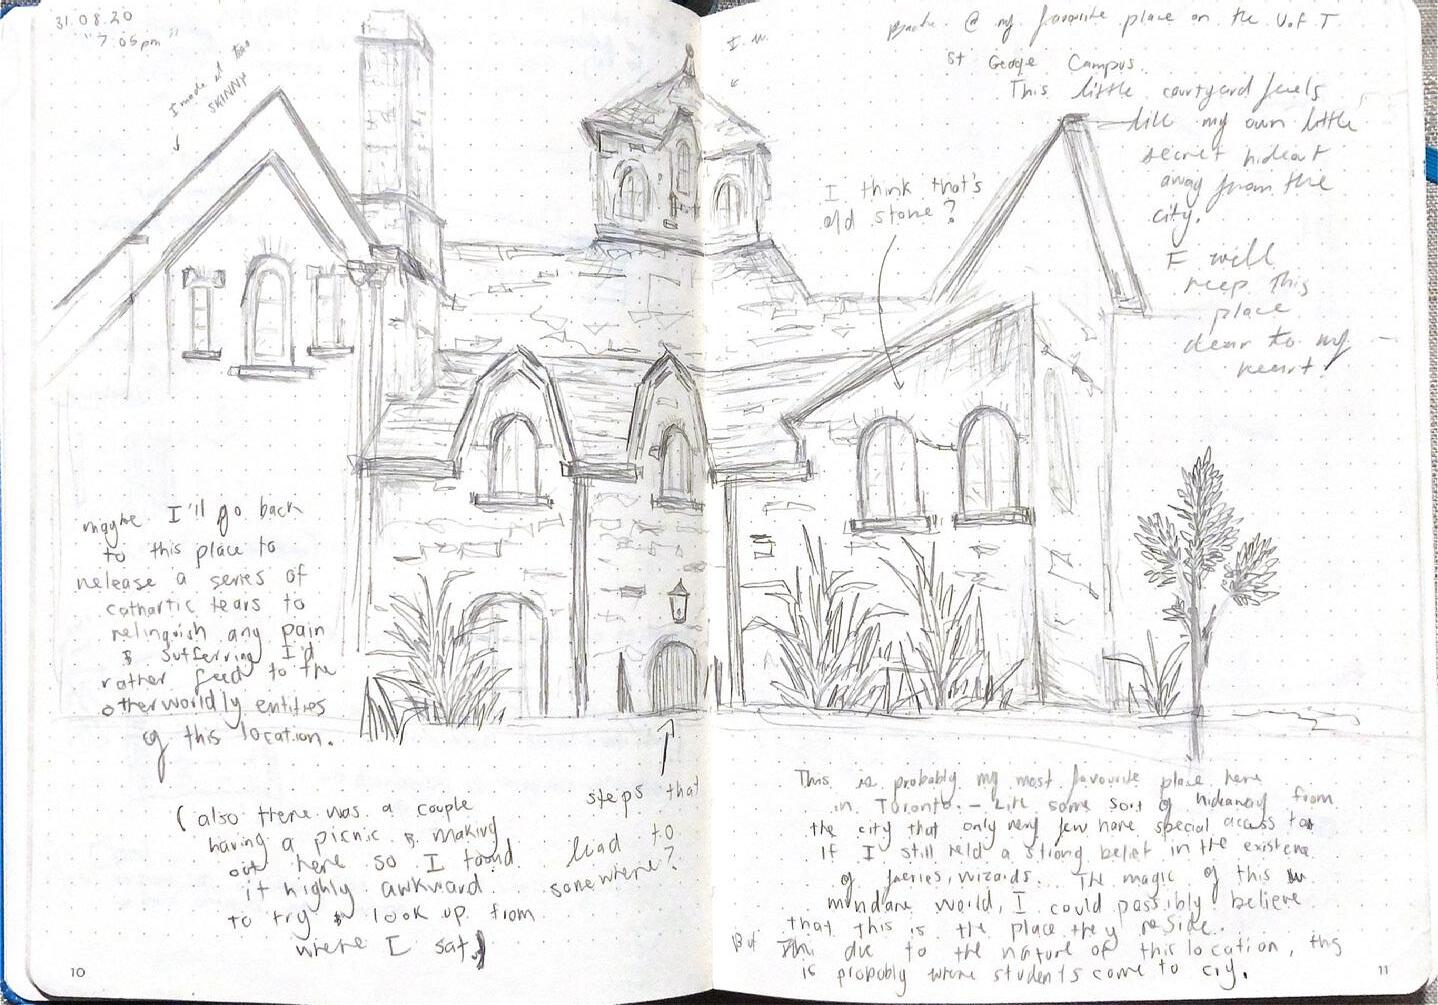 31.08.20
"7.05pm"
I made it too
SKINNY
I
@ my favourite place on the U of T
St George Campus.
This little courtyard feels
like my own little
secret hideout
away from the
city.
I will
keep this
place
dear to my
heart.
I think that's
old stone?
maybe I'll go back
to this place to
release a series of
cathartic tears to
relinquish any pain
& suffering I'd
rather feed to the
otherworldly entities
of this location.
(also there was a couple
having a picnic & making
out here so I found
it highly awkward
to try & look up from
where I sat)
steps that
lead to
somewhere?
This is probably my most favourite place here
in Toronto. – Like some sort of hideaway from
the city that only very few have special access to
If I still held a strong belief in the existence
of faeries, wizards... The magic of this
mundane world, I could possibly believe
that this is the place they reside.
But due to the nature of this location, this
is probably where students come to cry.
10
11